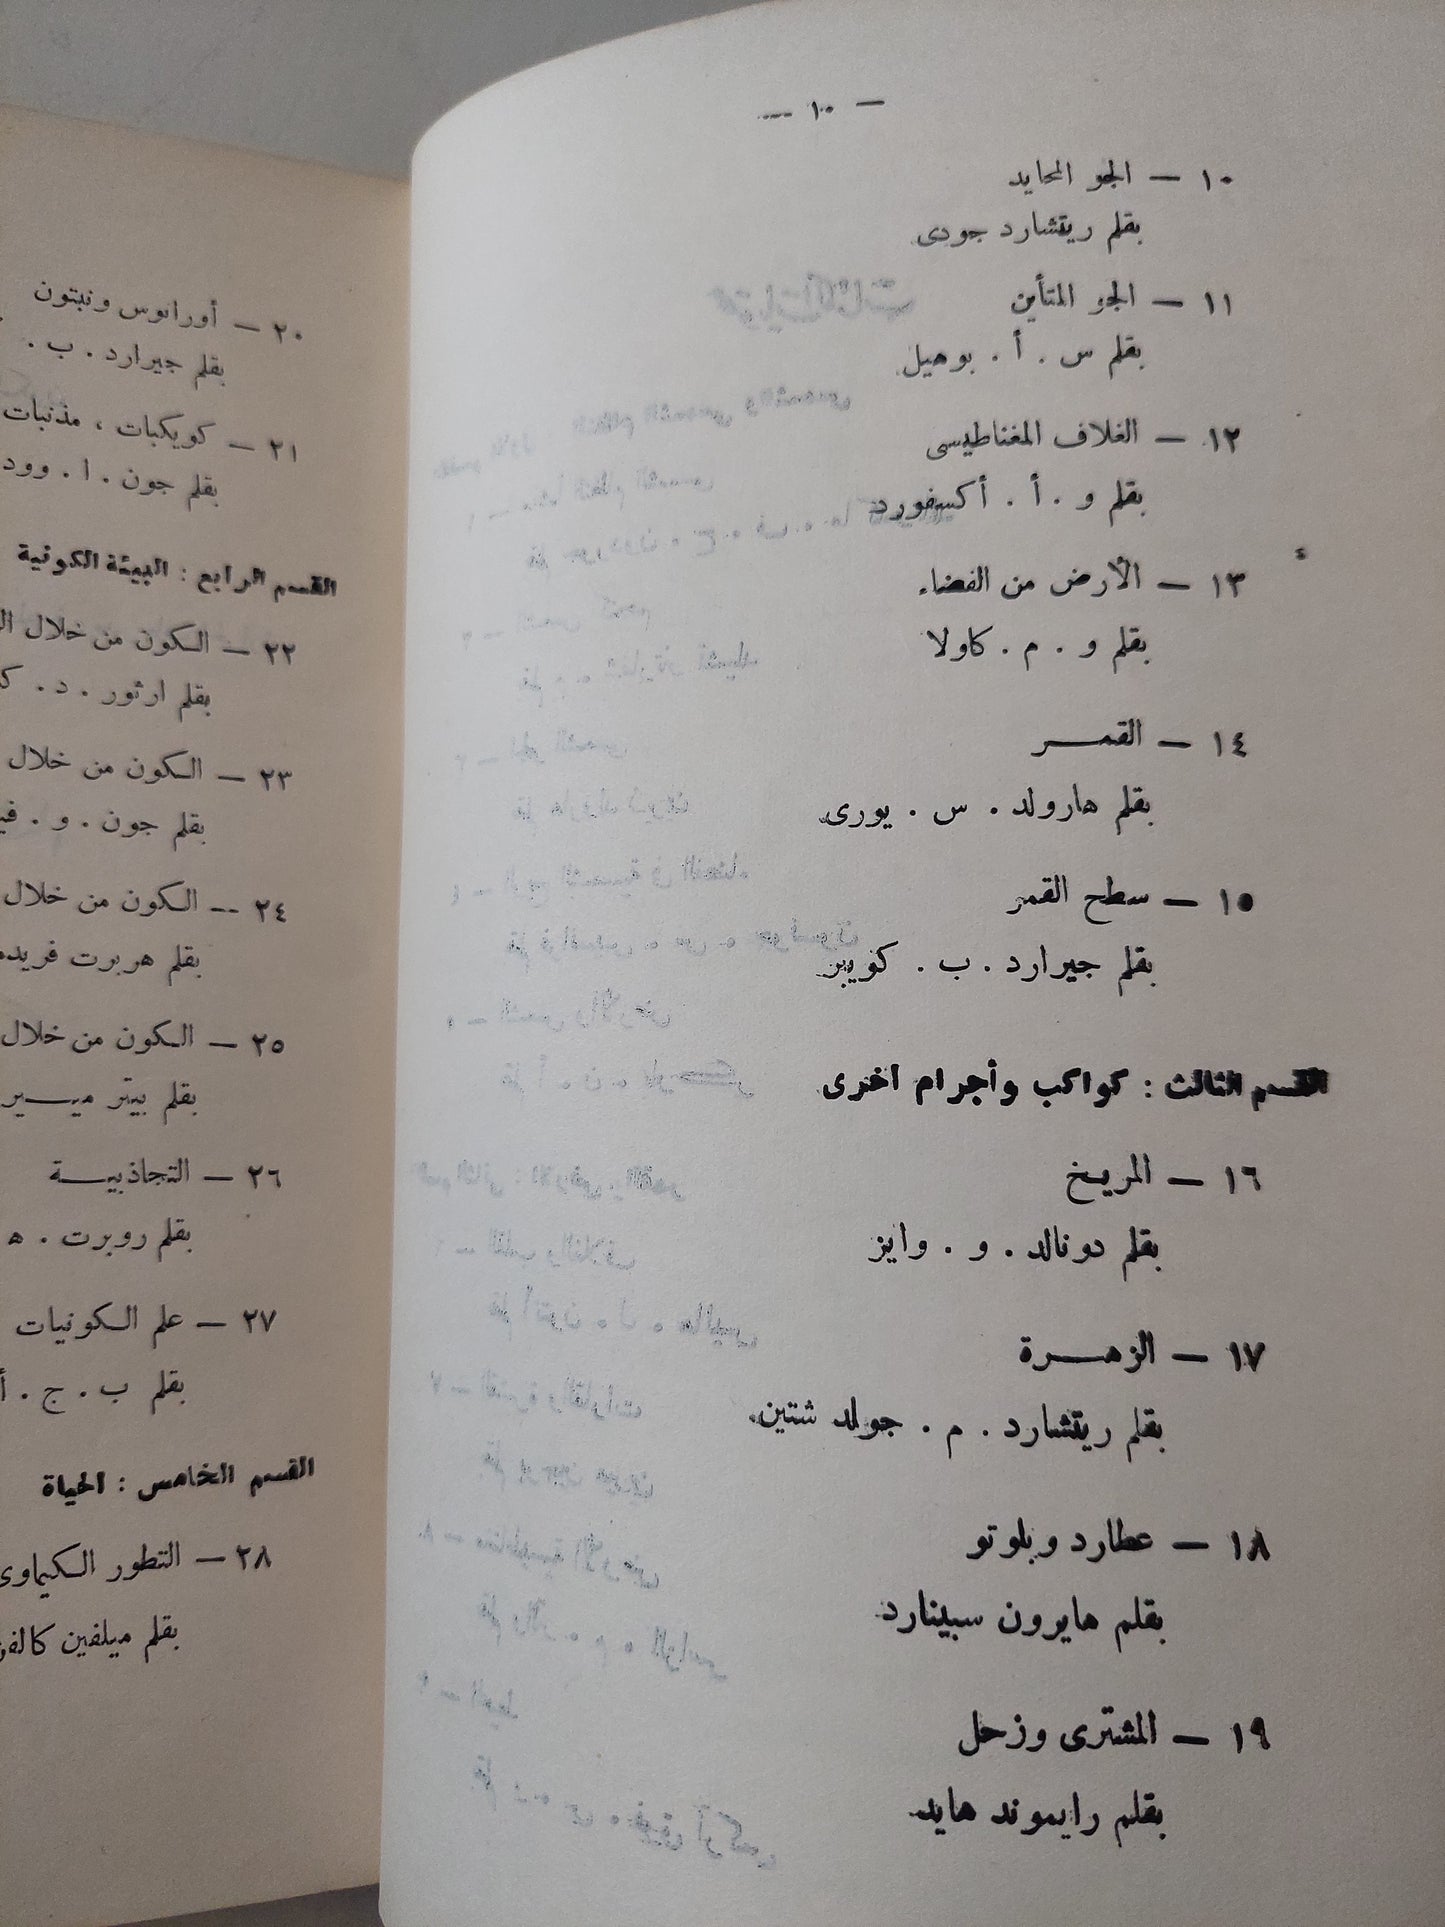 — ١٠ —
١٠ — الجو المحايد
بقلم ريتشارد جودى
١١ — الجو المتأين
بقلم س . أ . بوهيل
١٢ — الغلاف المغناطيسى
بقلم و . أ . أكسفورد
١٣ — الأرض من الفضاء
بقلم و . م . كاولا
١٤ — القمـــر
بقلم هارولد . س . يورى
١٥ — سطح القمر
بقلم جيرارد . ب . كويبر
القسم الثالث : كواكب وأجرام أخرى
١٦ — المريخ
بقلم دونالد . و . وايز
١٧ — الزهـــرة
بقلم ريتشارد . م . جولد شتين
١٨ — عطارد وبلوتو
بقلم هايرون سبينارد
١٩ — المشترى وزحل
بقلم رايموند هايد
٢٠ — أورانوس ونبتون
بقلم جيرارد . ب .
٢١ — كويكبات ، مذنبات
بقلم جون . ا . وود
القسم الرابع : البيئة الكونية
٢٢ — الكون من خلال
بقلم ارثور . د .
٢٣ — الكون من خلال
بقلم جون . و .
٢٤ — الكون من خلال
بقلم هربرت
٢٥ — الكون من خلال
بقلم بيتر
٢٦ — التجاذبيـــة
بقلم روبرت . ه
٢٧ — علم الكونيات
بقلم ب . ج . أ
القسم الخامس : الحياة
٢٨ — التطور الكيماوى
بقلم ميلفين